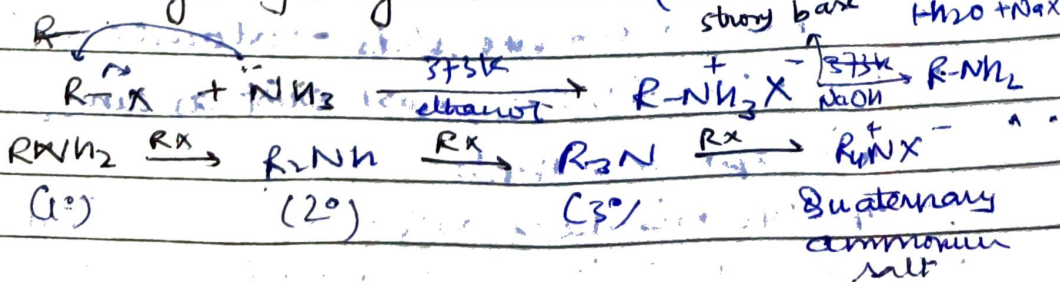 strong base + H2O + NaX
R–
R–X + N̈H3 373K ethanol → R–N⁺H3X⁻ 373K NaOH → R–NH2
RNH2 RX → R2NH RX → R3N RX → R4N⁺X⁻
(1°) (2°) (3°) Quaternary
ammonium
salt